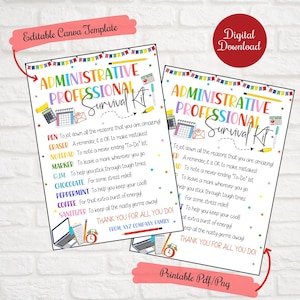 Editable Canva Template
Digital
Download
ADMINISTRATIVE
PROFESSIONAL
Survival Kit
PEN To jot down all the reasons that you are amazing!
ERASER A reminder, it is OK to make mistakes!
NOTEPAD To write a never ending "To-Do" list
MARKER To leave a mark wherever you go
GUM To help you stick through tough times
CHOCOLATE For some stress relief!
PEPPERMINT To help you keep your cool!
COFFEE For that extra burst of energy!
SANITIZER To keep all the nasty germs away!
THANK YOU FOR ALL YOU DO!
FROM: XYZ COMPANY FAMILY
ADMINISTRATIVE
PROFESSIONAL
Survival Kit
To jot down all the reasons that you are amazing!
A reminder, it is OK to make mistakes!
To write a never ending "To-Do" list
To leave a mark wherever you go
To help you stick through tough times
For some stress relief!
To help you keep your cool!
For that extra burst of energy!
To keep all the nasty germs away!
THANK YOU FOR ALL YOU DO!
Printable Pdf/Png